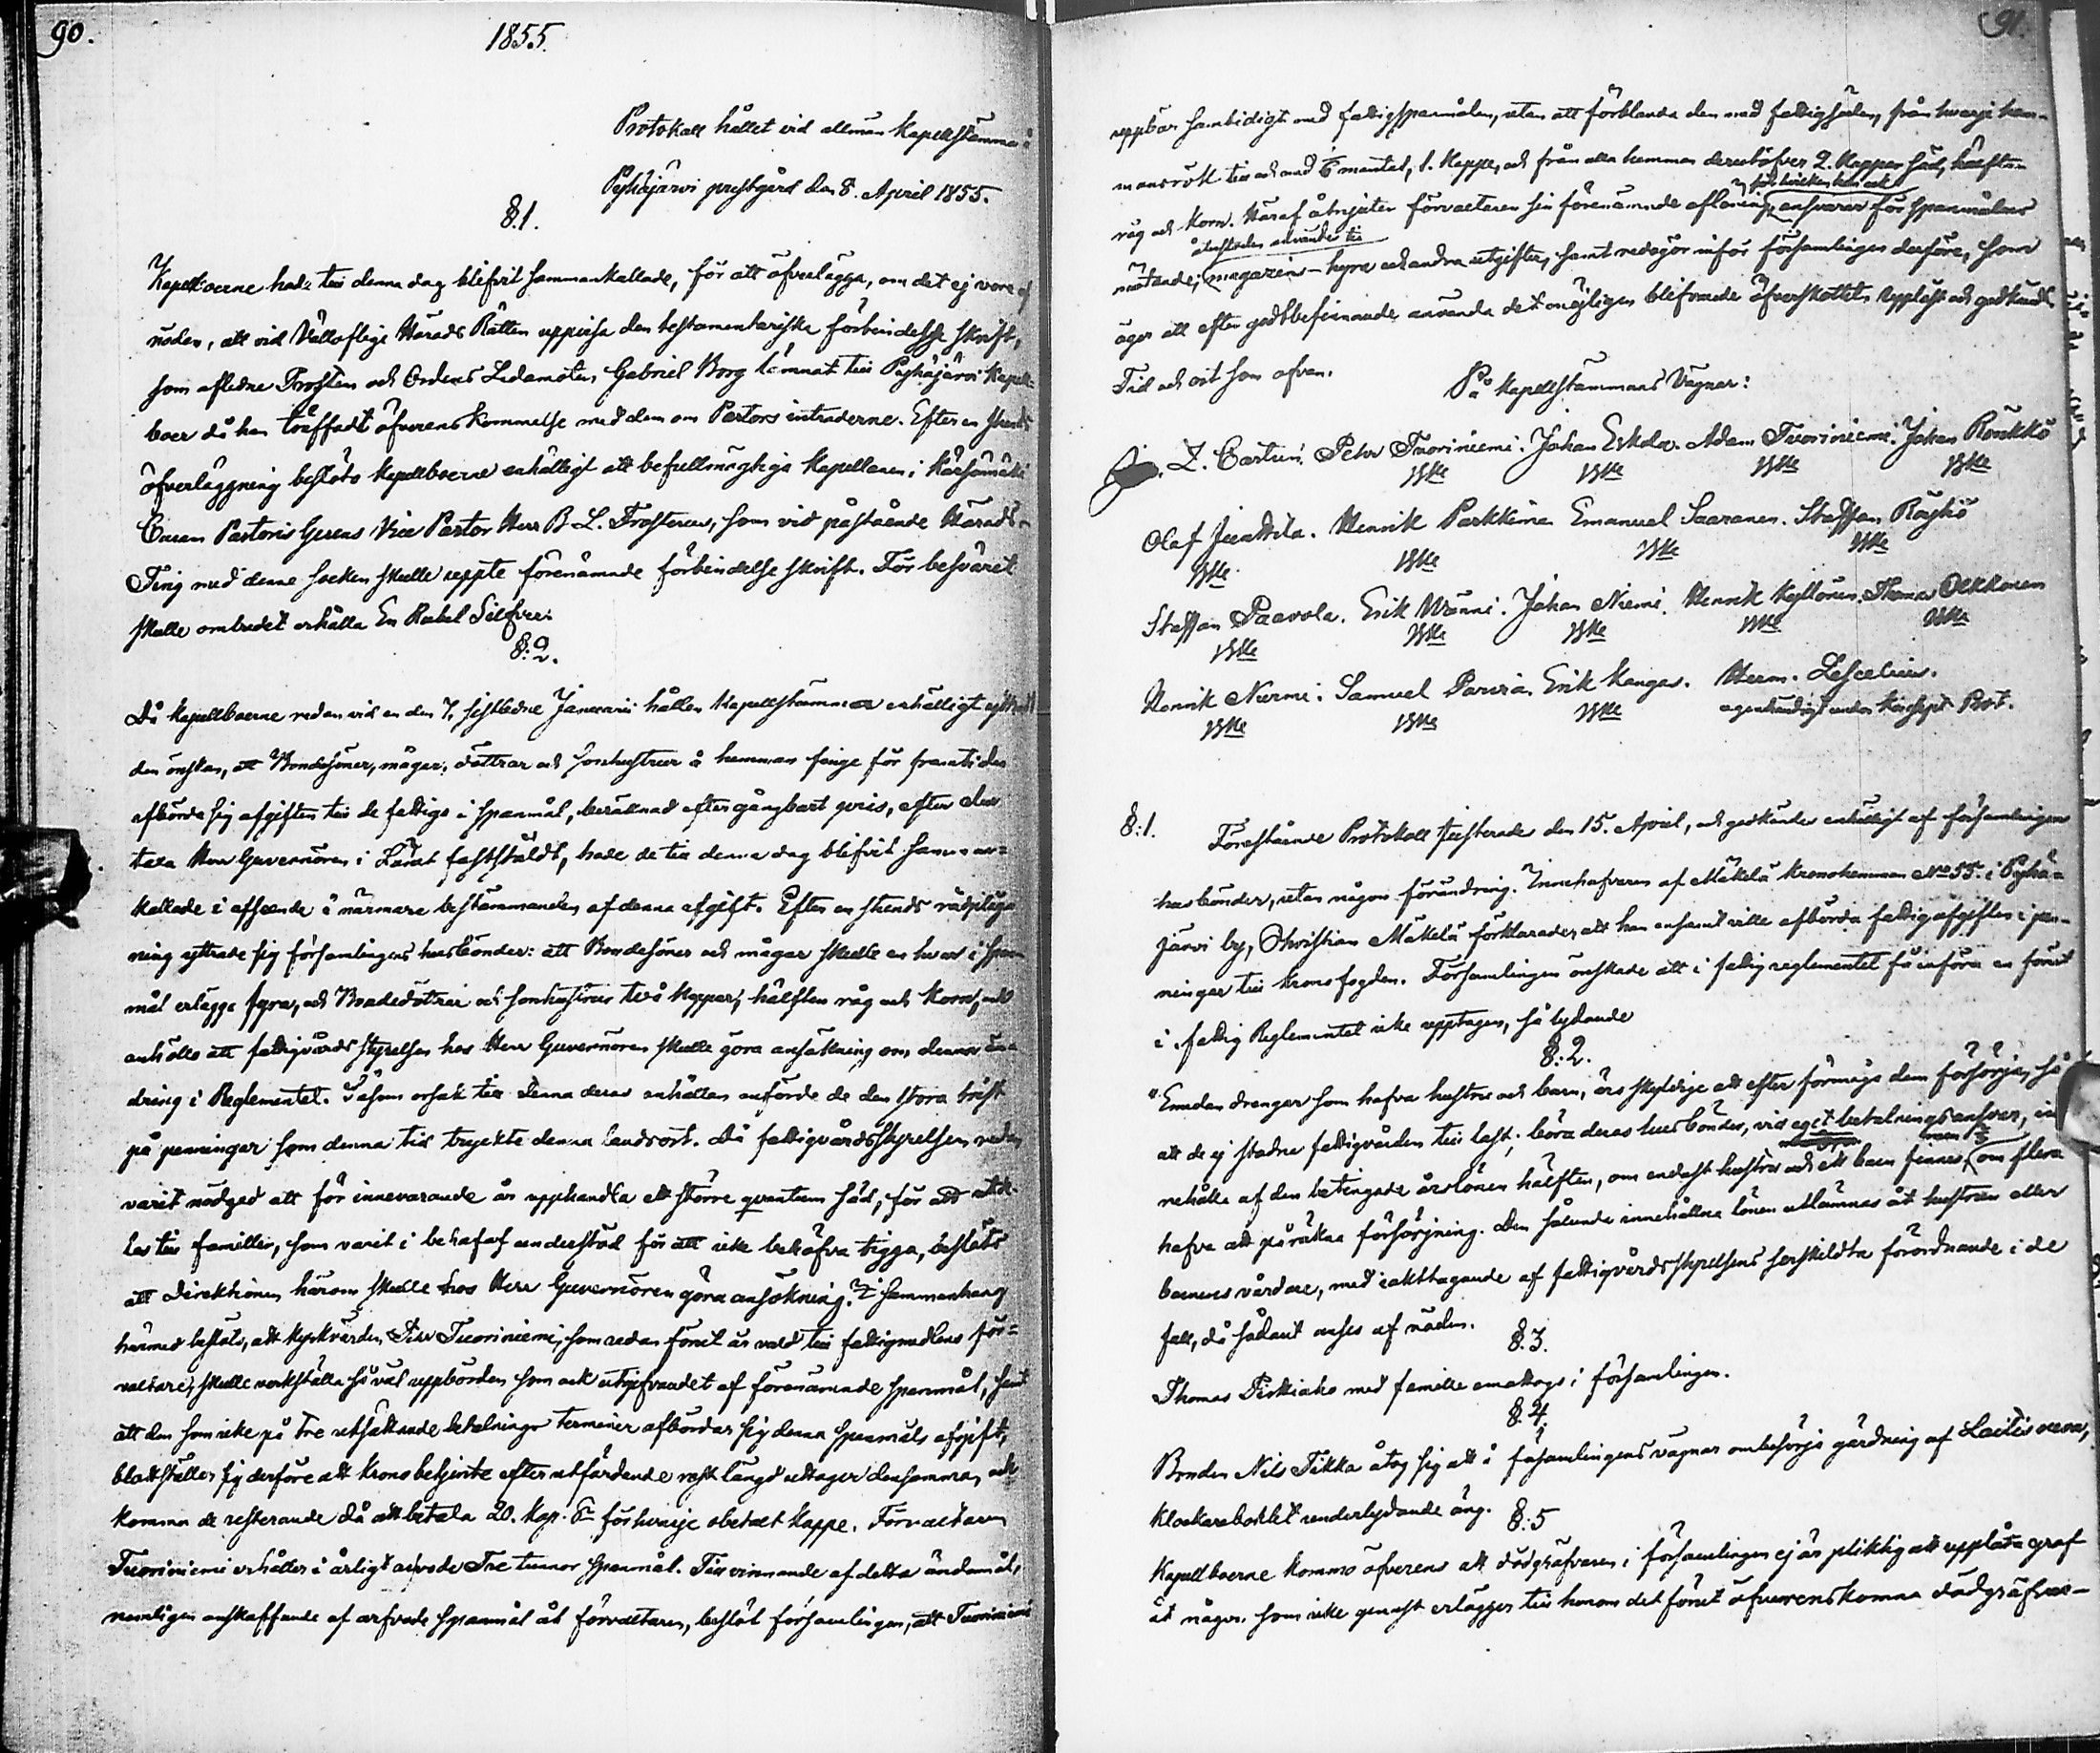 90.
1855.
Protokoll hållet vid allmän Kapellstämma i
Pyhäjärvi prestgård den 8. April 1855.
§.1.
Kapellboerne hade till denna dag blifvit sammankallade, för att öfverlägga, om det ej vore af
nöden, att vid Vällofliga Härads Rätten uppvisa den testamentariske förbindelse skrift,
som aflidne Prosten och Ordens Ledamoten, Gabriel Borg lemnat till Pyhäjärvi Kapell-
boer då han träffadt öfverenskommelse med dem om Pastors intraderne. Efter en stunds
öfverläggning beslöto kapellboerne enhälligt att befullmägtiga Kapellanen i Kärsämäki
Curam Pastoris Gerens Vice Pastor Herr B. L. Frosterus, som vid påstående Härads-
Ting med denne socken skulle uppte förenämnde förbindelse skrift. För besväret
skulle ombudet erhålla En Rubel Silfver.
§:2.
Då kapellboerne redan vid en den 7. sistledne Januarii hållen Kapellstämma enhälligt yttradt
den önskan, att Bondesöner, mågar, döttrar och sonhustrur å hemman finge för framtiden
afbörda sig afgiften till de fattige i spanmål, beräknad efter gångbart pris, efter den
taxa Herr Guvernören i Länet fastställdt, hade de till denna dag blifvit samman-
kallade i afseende å närmare bestämmandet af denna afgift. Efter en stunds rådpläg-
ning yttrade sig församlingens husbönder: att Bondesöner och mågar skulle en hvar i span-
mål erlägga fyra, och Bondedöttrar och sonhustrur två Kappar, hälften råg och Korn, och
anhöllo att fattigvårds styrelsen hos Herr Guvernören skulle göra ansökning om denna än-
dring i Reglementet. Såsom orsak till denna deras anhållan anförde de den stora brist
på penningar som denna tid tryckte denna landsort. Då fattigvårdsstyrelsen redan
varit nödgad att för innevarande år upphandla ett större qvantum säd, för att utde-
las till familler, som varit i behof af understöd för att icke behöfva tigga, beslöts
att Direktionen härom skulle hos Herr Guvernören göra ansökning. I sammanhang
härmed beslöts, att Kyrkvärden Petter Tuoriniemi, som redan förut är vald till fattigmedlens för-
valtare, skulle verkställa så väl uppbörden som ock utgifvandet af förenämnde spanmål, samt
att den som icke på tre utsatte betalnings terminer afbördar sig denna spanmåls afgift,
blottställer sig derföre att Kronobetjente efter utfärdande rest längd uttager densamma, och
komma de resterande då att betala 20. Kop. Sr. för hvarje obetalt Kappe. Förvaltaren
Tuoriniemi erhåller i årligt arvode Tre tunnor spanmål. Till vinnande af detta ändamål,
nemligen anskaffande af arfvode spanmål åt förvaltaren, beslöt församlingen, att Tuoriniemi
91.
uppbär sambidigt med fattigspanmålen, utan att förblanda den med fattigsäden, från hvarje hem-
mansrök till och med 1/6 mantal, 1. Kappe, och från alla hemman derutöfver 2. Kappar säd, hälften
för hvilken han ock
råg och korn. Häraf åtnjuter förvaltaren sin förenämnde aflöning, ansvarar för spanmålens
återstoden använder till
mätande; magazins-hyra och andra utgifter, samt redogör inför församlingen derföre, som
äger att efter godtbefinnande använda det möjligen blifvande öfverskottet. Uppläst och godkändt.
Tid och ort som ofvan.
På Kapellstämmans Vägnar:
Z. Castrén. Petter Tuoriniemi. Johan Eskola. Adam Tuoriniemi. Johan Rönkkö
Olaf Junttila. Henrik Parkkima Emanuel Saaranen. Staffan Röykö
Staffan Paavola. Erik Wänni. Johan Niemi. Henrik Kyllönen. Thomas Olkkonen
Henrik Nurmi. Samuel Parviä. Erik Kangas. Herm. Lescelius.
egenhändigt under Koncept Prot.
§:1. Förestående Protokoll justerade den 15. April, och godkändes enhälligt af församlingens
husbönder, utan någon förändring. Innehafvaren af Mäkelä Kronohemman No 55. i Pyhä-
järvi by, Christian Mäkelä förklarade, att han ensamt ville afbörda fattigafgiften i pen-
ningar till Kronofogden. Församlingen önskade att i fattigreglementet få införa en förut
i fattig Reglementet icke upptagen, så lydande
§:2.
"Emedan drengar som hafva hustru och barn, äro skyldige att efter förmåga dem försörja, så
att de ej stadna fattigvården till last; böra deras husbönder, vid eget betalningsansvar, in-
men 2/3
nehålla af den betingade årslönen hälften, om endast hustru och ett barn finnes, om flera
hafva att påräkna försörjning. Den sålunda innehållna lönen utlämnas åt hustrun eller
barnens vårdare, med iakttagande af fattigvårdsstyrelsens serskildta förordnande i de
fall, då sådant anses af nöden.
§.3.
Thomas Pirttiaho med famille emottogs i församlingen.
§.4.
Bonden Nils Tikka åtog sig att å församlingens vägnar ombesörja gärdning af Laitisneva,
Klockarebolet underlydande äng.
§.5
Kapellboerne kommo öfverens att dödgräfvaren i församlingen ej är pliktig att upplåta graf
åt någon, som icke genast erlägger till honom det förut öfverenskomna dödgräfvar-